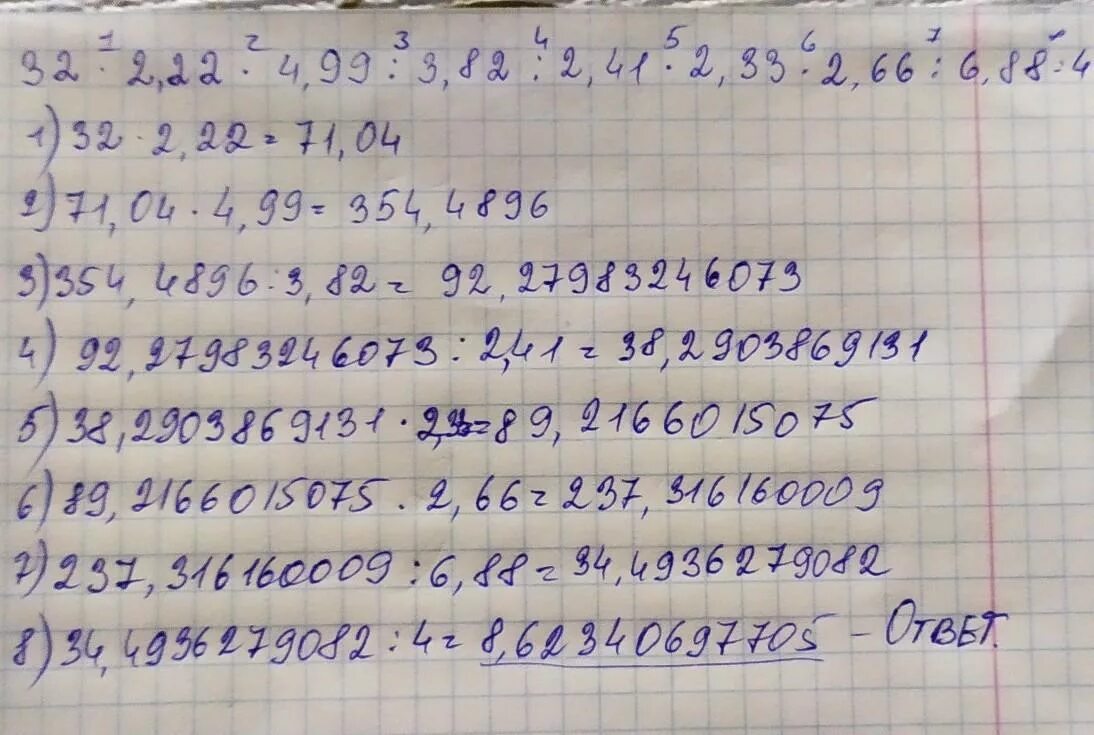 1 2 3 4 5 6 7
32 · 2,22 · 4,99 : 3,82 : 2,41 · 2,33 · 2,66 : 6,88 : 4
1) 32 · 2,22 = 71,04
2) 71,04 · 4,99 = 354,4896
3) 354,4896 : 3,82 = 92,27983246073
4) 92,27983246073 : 2,41 = 38,2903869131
5) 38,2903869131 · 2,33 = 89,2166015075
6) 89,2166015075 · 2,66 = 237,316160009
7) 237,316160009 : 6,88 = 34,4936279082
8) 34,4936279082 : 4 = 8,62340697705 – Ответ.